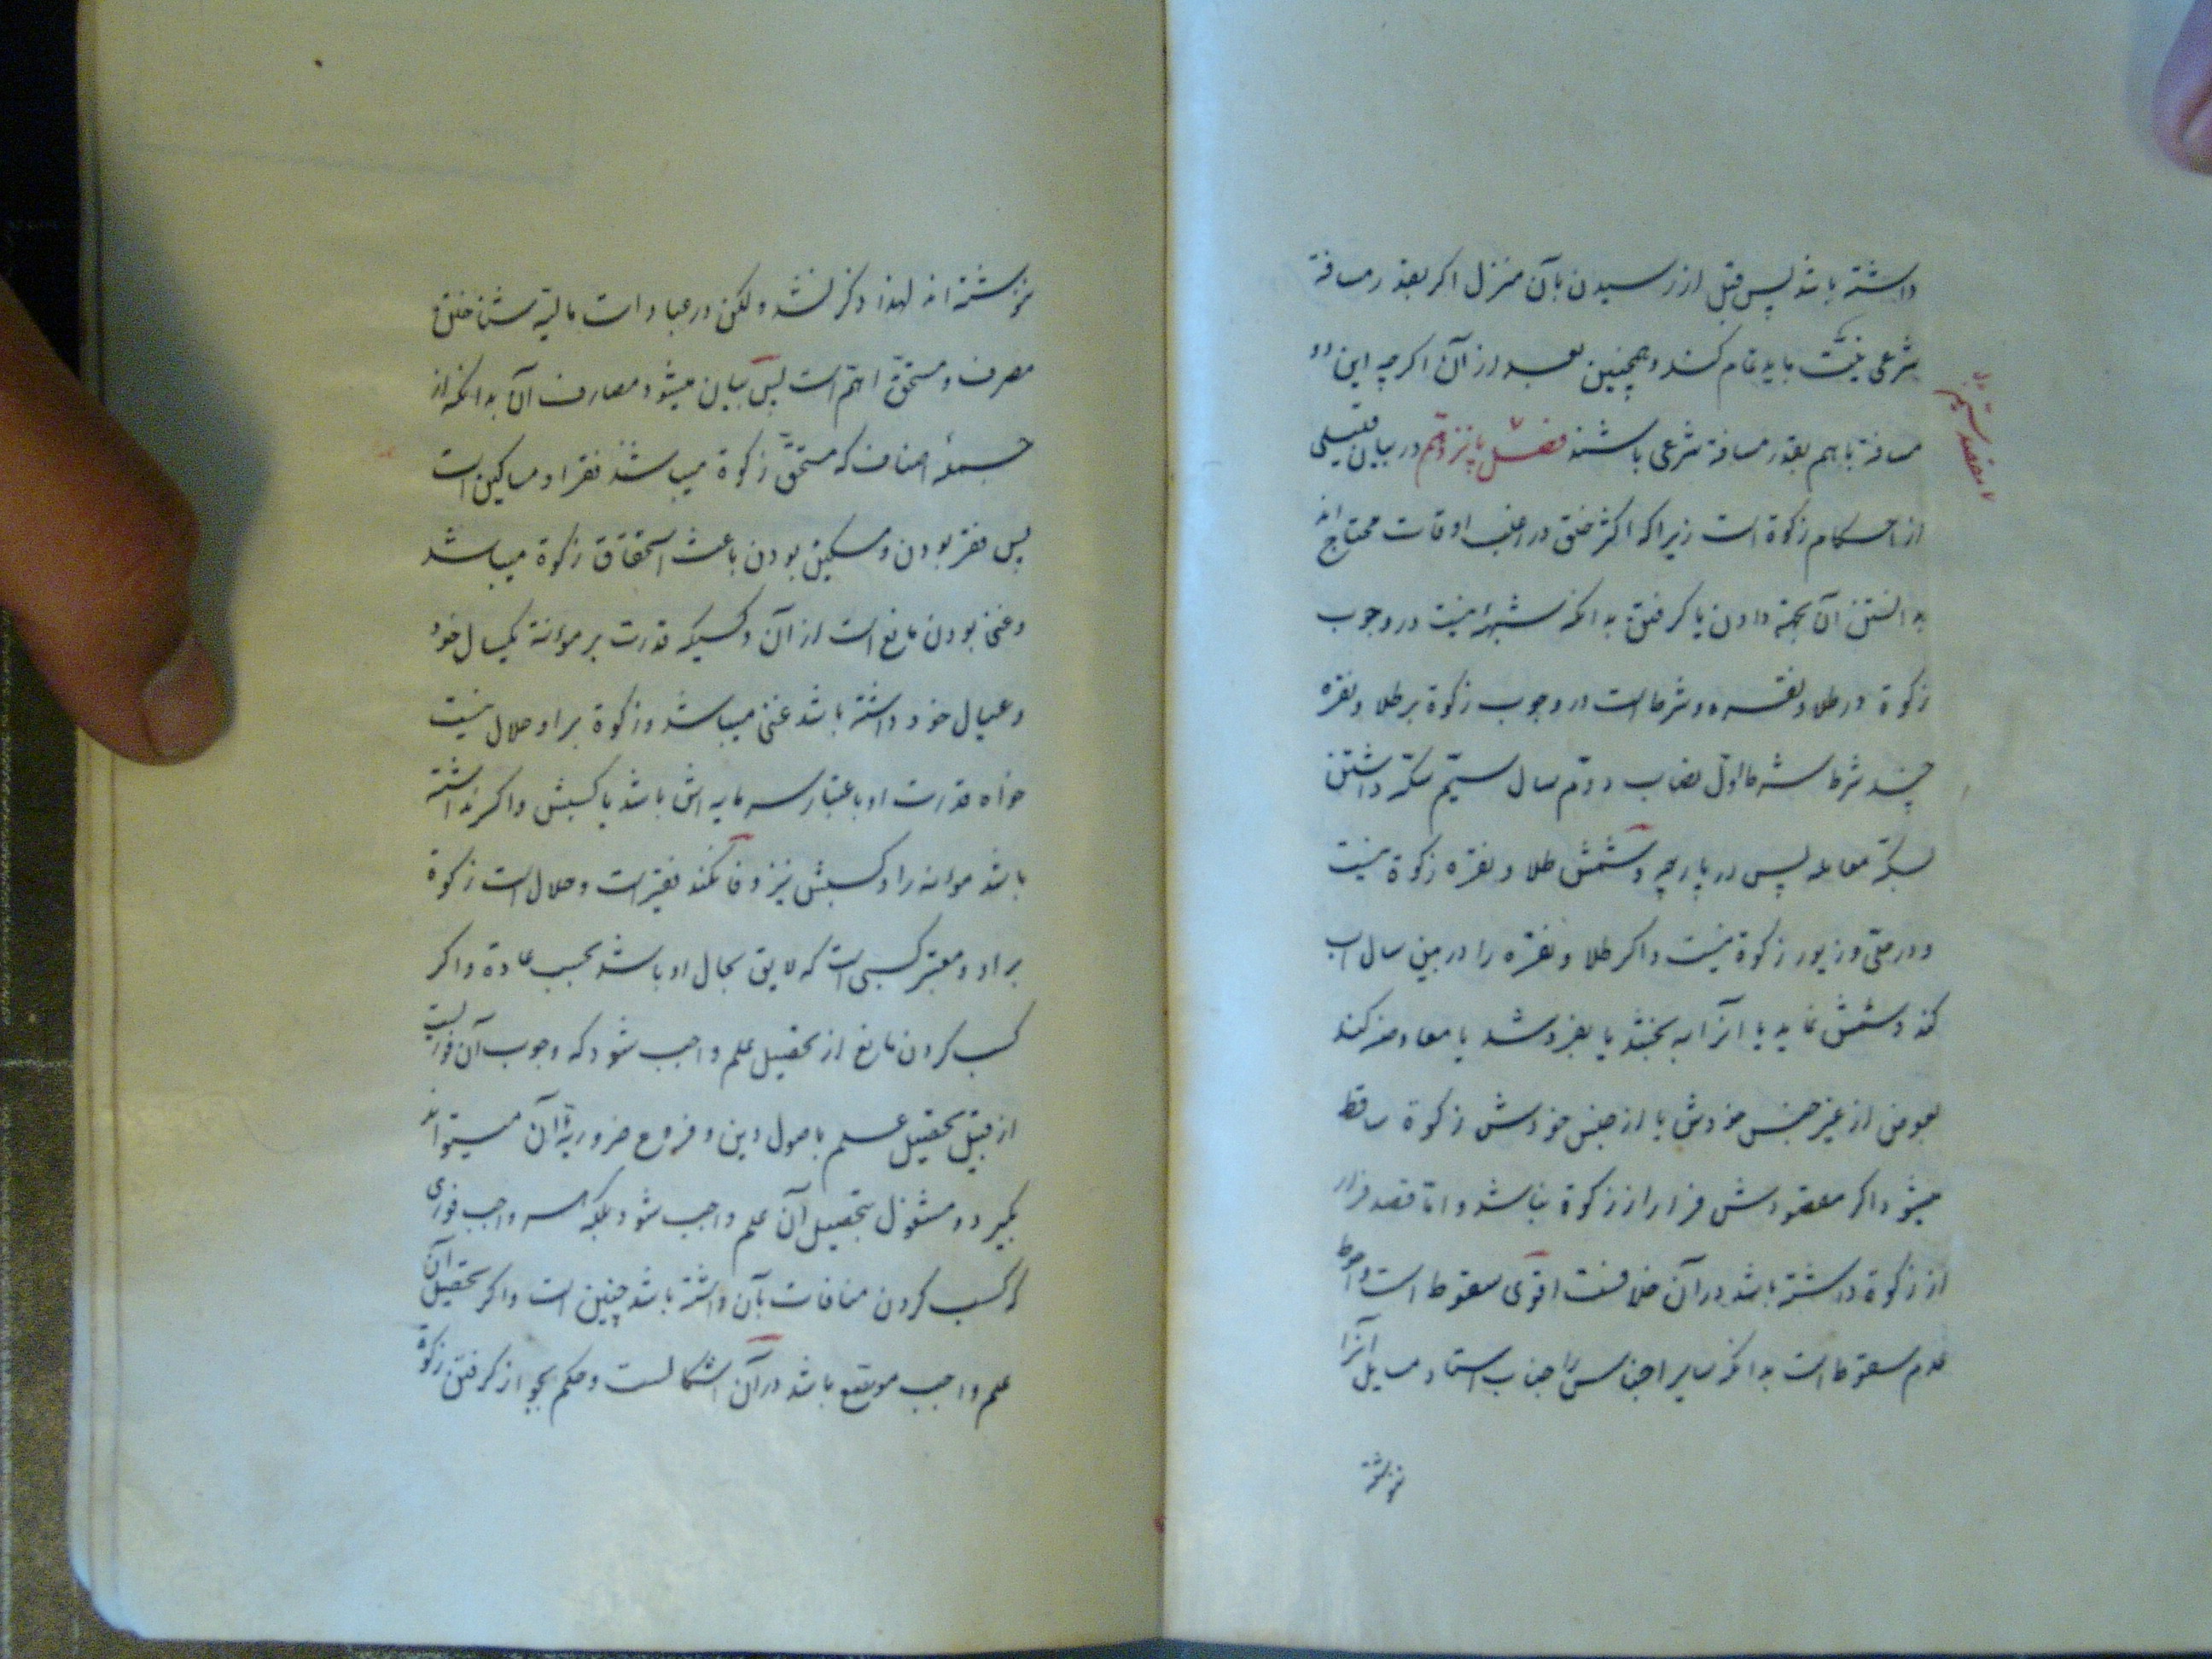 داشته باشد پس قبل از رسیدن بآن منزل اکر بقدر مسافة
شرعی نیست باید تمام کند و همچنین بعد از آن اکرچه این دو
مسافة با هم بقدر مسافة شرعی باشند فصل پانزدهم در بیان قلیلی
از احکام زکوة است زیرا که اکثر خلق در اغلب اوقات محتاج اند
بدانستن آن بجهة دادن یا کرفتن بدانکه شبهۀ نیست در وجوب
زکوة در طلا و نقره و شرط است در وجوب زکوة بر طلا و نقره
چند شرط شرط اول نصاب دوم سال سیم سکه داشتن
بسکه معامله پس در پارچه و شمش طلا و نقره زکوة نیست
و در حلی و زیور زکوة نیست و اکر طلا و نقره را در بین سال آب
کند و شمش نماید یا آنرا به بخشد یا بفروشد یا معاوضه کند
بعوض از غیر جنس خودش یا از جنس خودش زکوة ساقط
میشود اکر مقصودش فرار از زکوة نباشد و اما قصد فرار
از زکوة داشته باشد در آن خلافست اقوی سقوط است و احوط
عدم سقوط است بدانکه سایر اجناس را جناب استاد مسایل آنرا
نوشته
نوشته اند لهذا ذکر نشد و لکن در عبادات مالیة شناختن
مصرف و مستحق اهم است پس بیان میشود مصارف آن بدانکه از
جملۀ اصناف که مستحق زکوة میباشند فقرا و مساکین است
پس فقیر بودن و مسکین بودن باعث استحقاق زکوة میباشد
و غنی بودن مانع است از آن و کسیکه قدرت بر مؤنة یکسال خود
و عیال خود داشته باشد غنی میباشد و زکوة بر او حلال نیست
خواه قدرت او باعتبار سرمایه اش باشد یا کسبش و اکر نداشته
باشد مؤنه را و کسبش نیز وفا نکند فقیر است و حلال است زکوة
بر او و معتبر کسبی است که لایق بحال او باشد بحسب عادة و اکر
کسب کردن مانع از تحصیل علم واجب شود که وجوب آن فوریست
از قبیل تحصیل علم باصول دین و فروع ضروریۀ آن میتواند
بکیرد و مشغول بتحصیل آن علم واجب شود بلکه هر واجب فوری
که کسب کردن منافات بآن داشته باشد چنین است و اکر تحصیل آن
علم واجب موسع باشد در آن اشکالست و حکم بجواز کرفتن زکوة